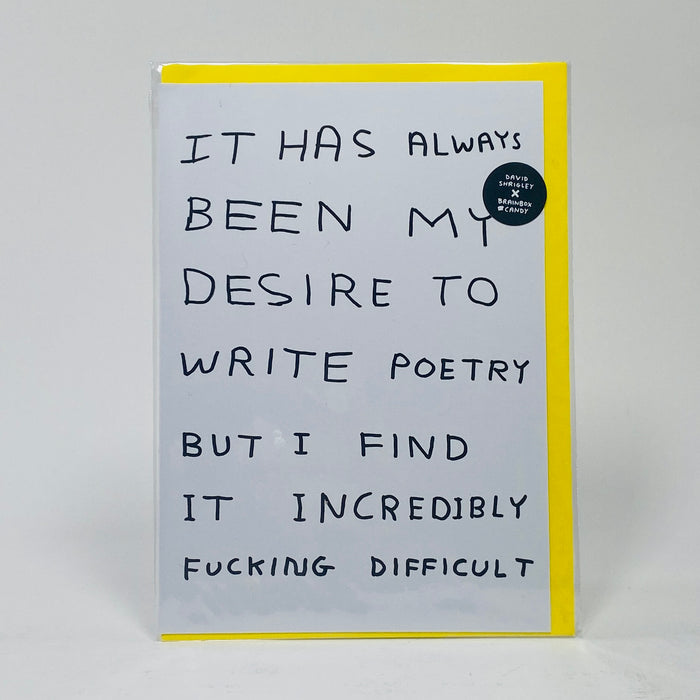 IT HAS ALWAYS
BEEN MY
DESIRE TO
WRITE POETRY
BUT I FIND
IT INCREDIBLY
FUCKING DIFFICULT
DAVID
SHRIGLEY
X
BRAINBOX
CANDY